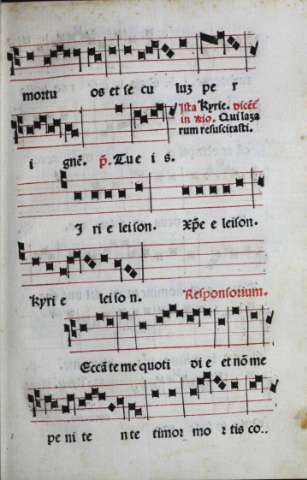 mortu os et se cu luz pe r
i gnē. p̄. Tu e i s.
Ista Kyrie. dicēt
in xio. Qui laza
rum resuscitasti.
I ri e leison. Xp̄e e leison.
Kyri e leiso n. Responsorium.
Eccā te me quoti di e et nō me
pe ni te n te timor mo rtis co..